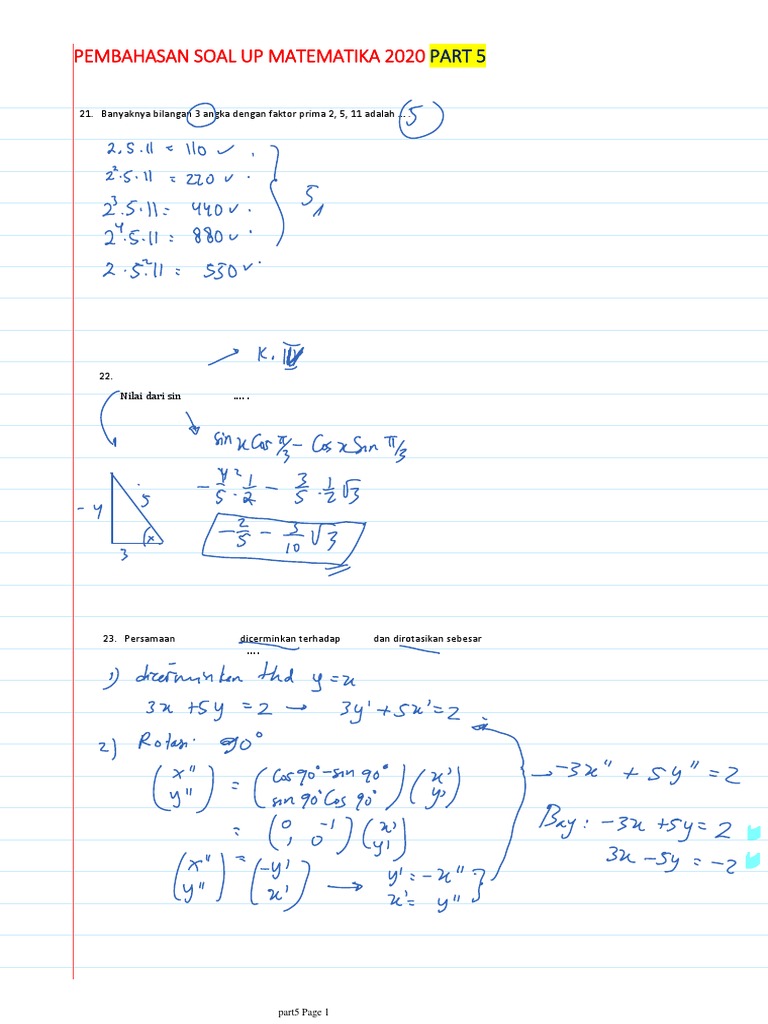 PEMBAHASAN SOAL UP MATEMATIKA 2020 PART 5
21. Banyaknya bilangan 3 angka dengan faktor prima 2, 5, 11 adalah .... 5
2.5.11 = 110 ✓ .
2².5.11 = 220 ✓ .
2³.5.11 = 440 ✓ .
2⁴.5.11 = 880 ✓ .
5
2.5².11 = 550 ✓ .
→ K. IV
22.
Nilai dari sin .....
sin x Cos π/3 − Cos x Sin π/3
−4/5 . 1/2 − 3/5 . 1/2 √3
−2/5 − 3/10 √3
-4
5
x
3
23. Persamaan dicerminkan terhadap dan dirotasikan sebesar
....
1) dicerminkan thd y = x
3x + 5y = 2 → 3y' + 5x' = 2
2) Rotasi 90°
(x'' y'') = (Cos 90° −sin 90° sin 90° Cos 90°)(x' y')
= (0 −1 1 0)(x' y')
(x'' y'') = (−y' x') → y' = −x''
x' = y''
→ −3x'' + 5y'' = 2
Bay: −3x + 5y = 2
3x − 5y = −2
part5 Page 1